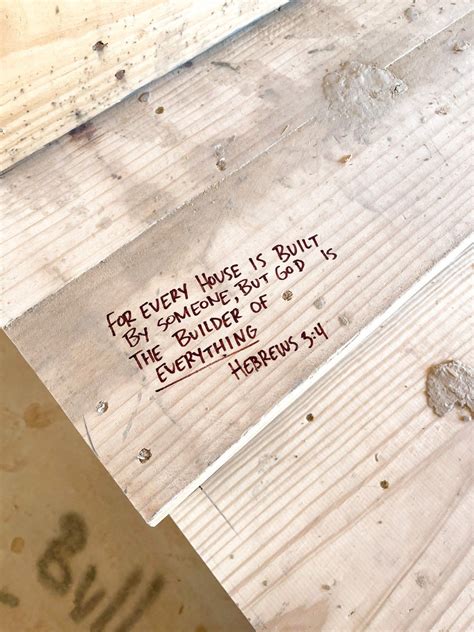 FOR EVERY HOUSE IS BUILT
BY SOMEONE, BUT GOD IS
THE BUILDER OF
EVERYTHING
HEBREWS 3:4
Bull